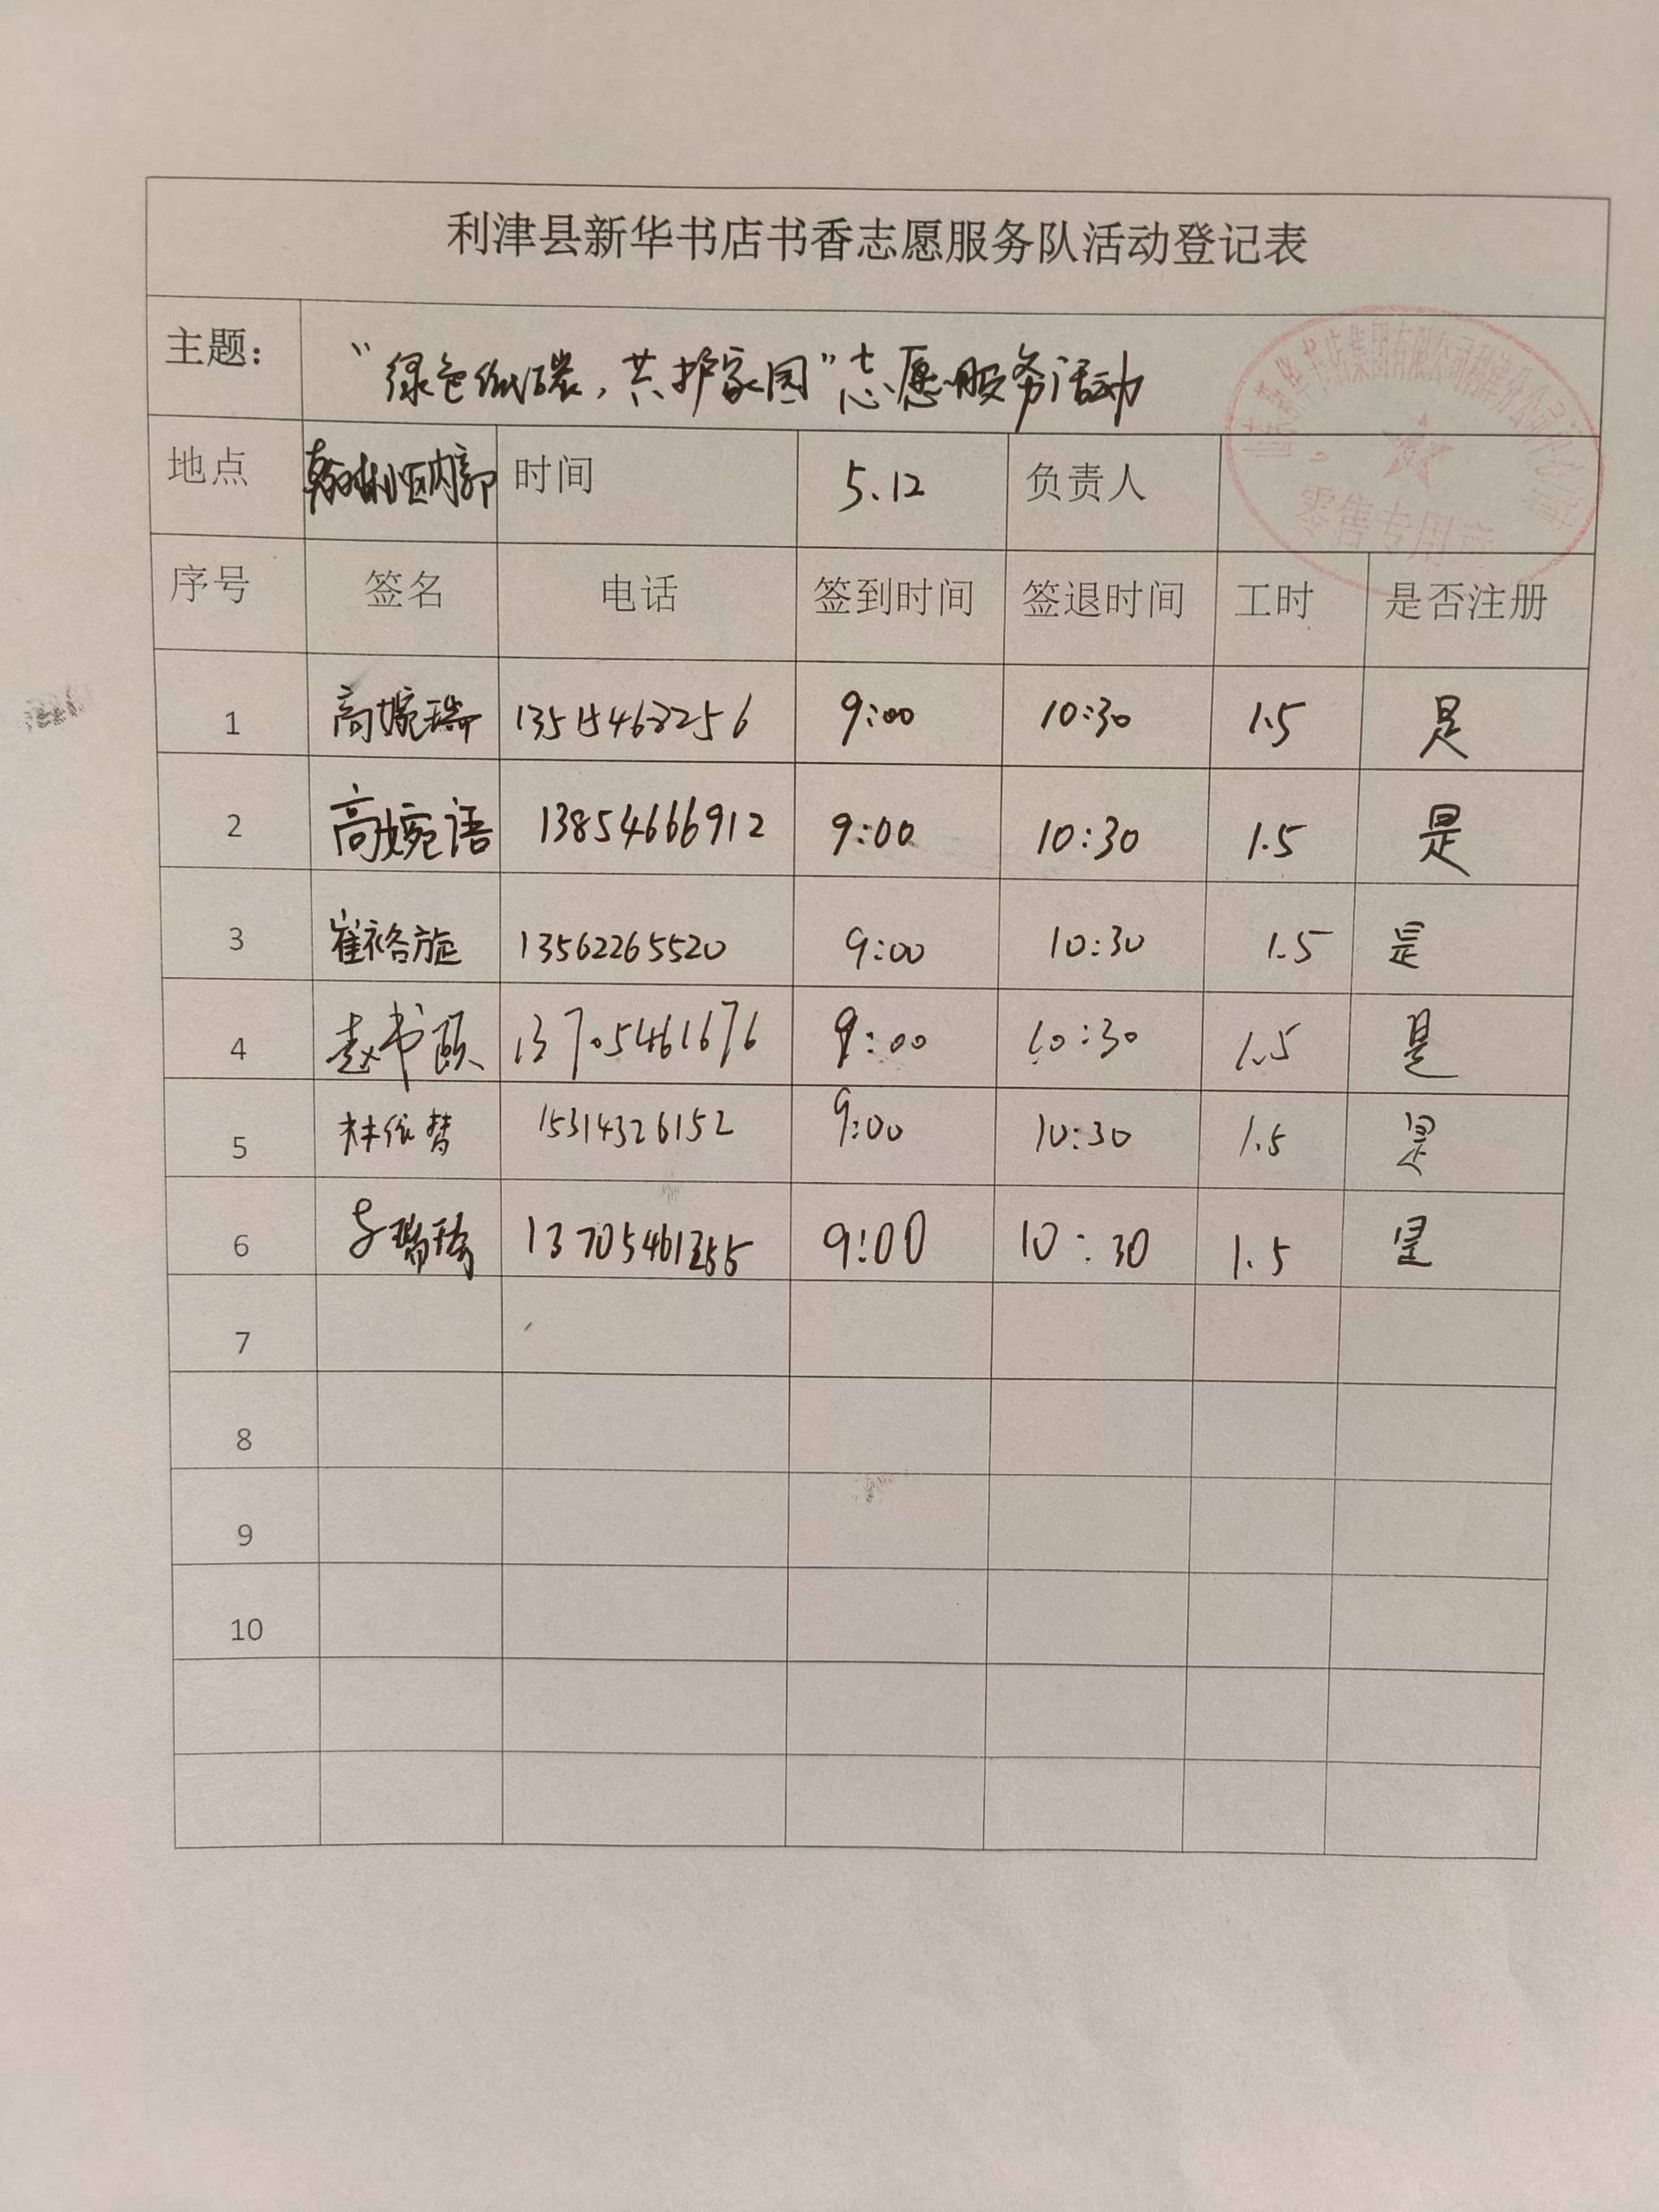 利津县新华书店书香志愿服务队活动登记表
主题： “绿色低碳，共护家园”志愿服务活动
地点 时间 5.12 负责人
零售专用章
序号 签名 电话 签到时间 签退时间 工时 是否注册
1 高婉瑞 9:00 10:30 1.5 是
2 高婉语 13854666912 9:00 10:30 1.5 是
3 崔裕旋 13562265520 9:00 10:30 1.5 是
4 赵书颐 13705461676 9:00 10:30 1.5 是
5 林依 15314326152 9:00 10:30 1.5 是
6 13705461355 9:00 10:30 1.5 是
7
8
9
10